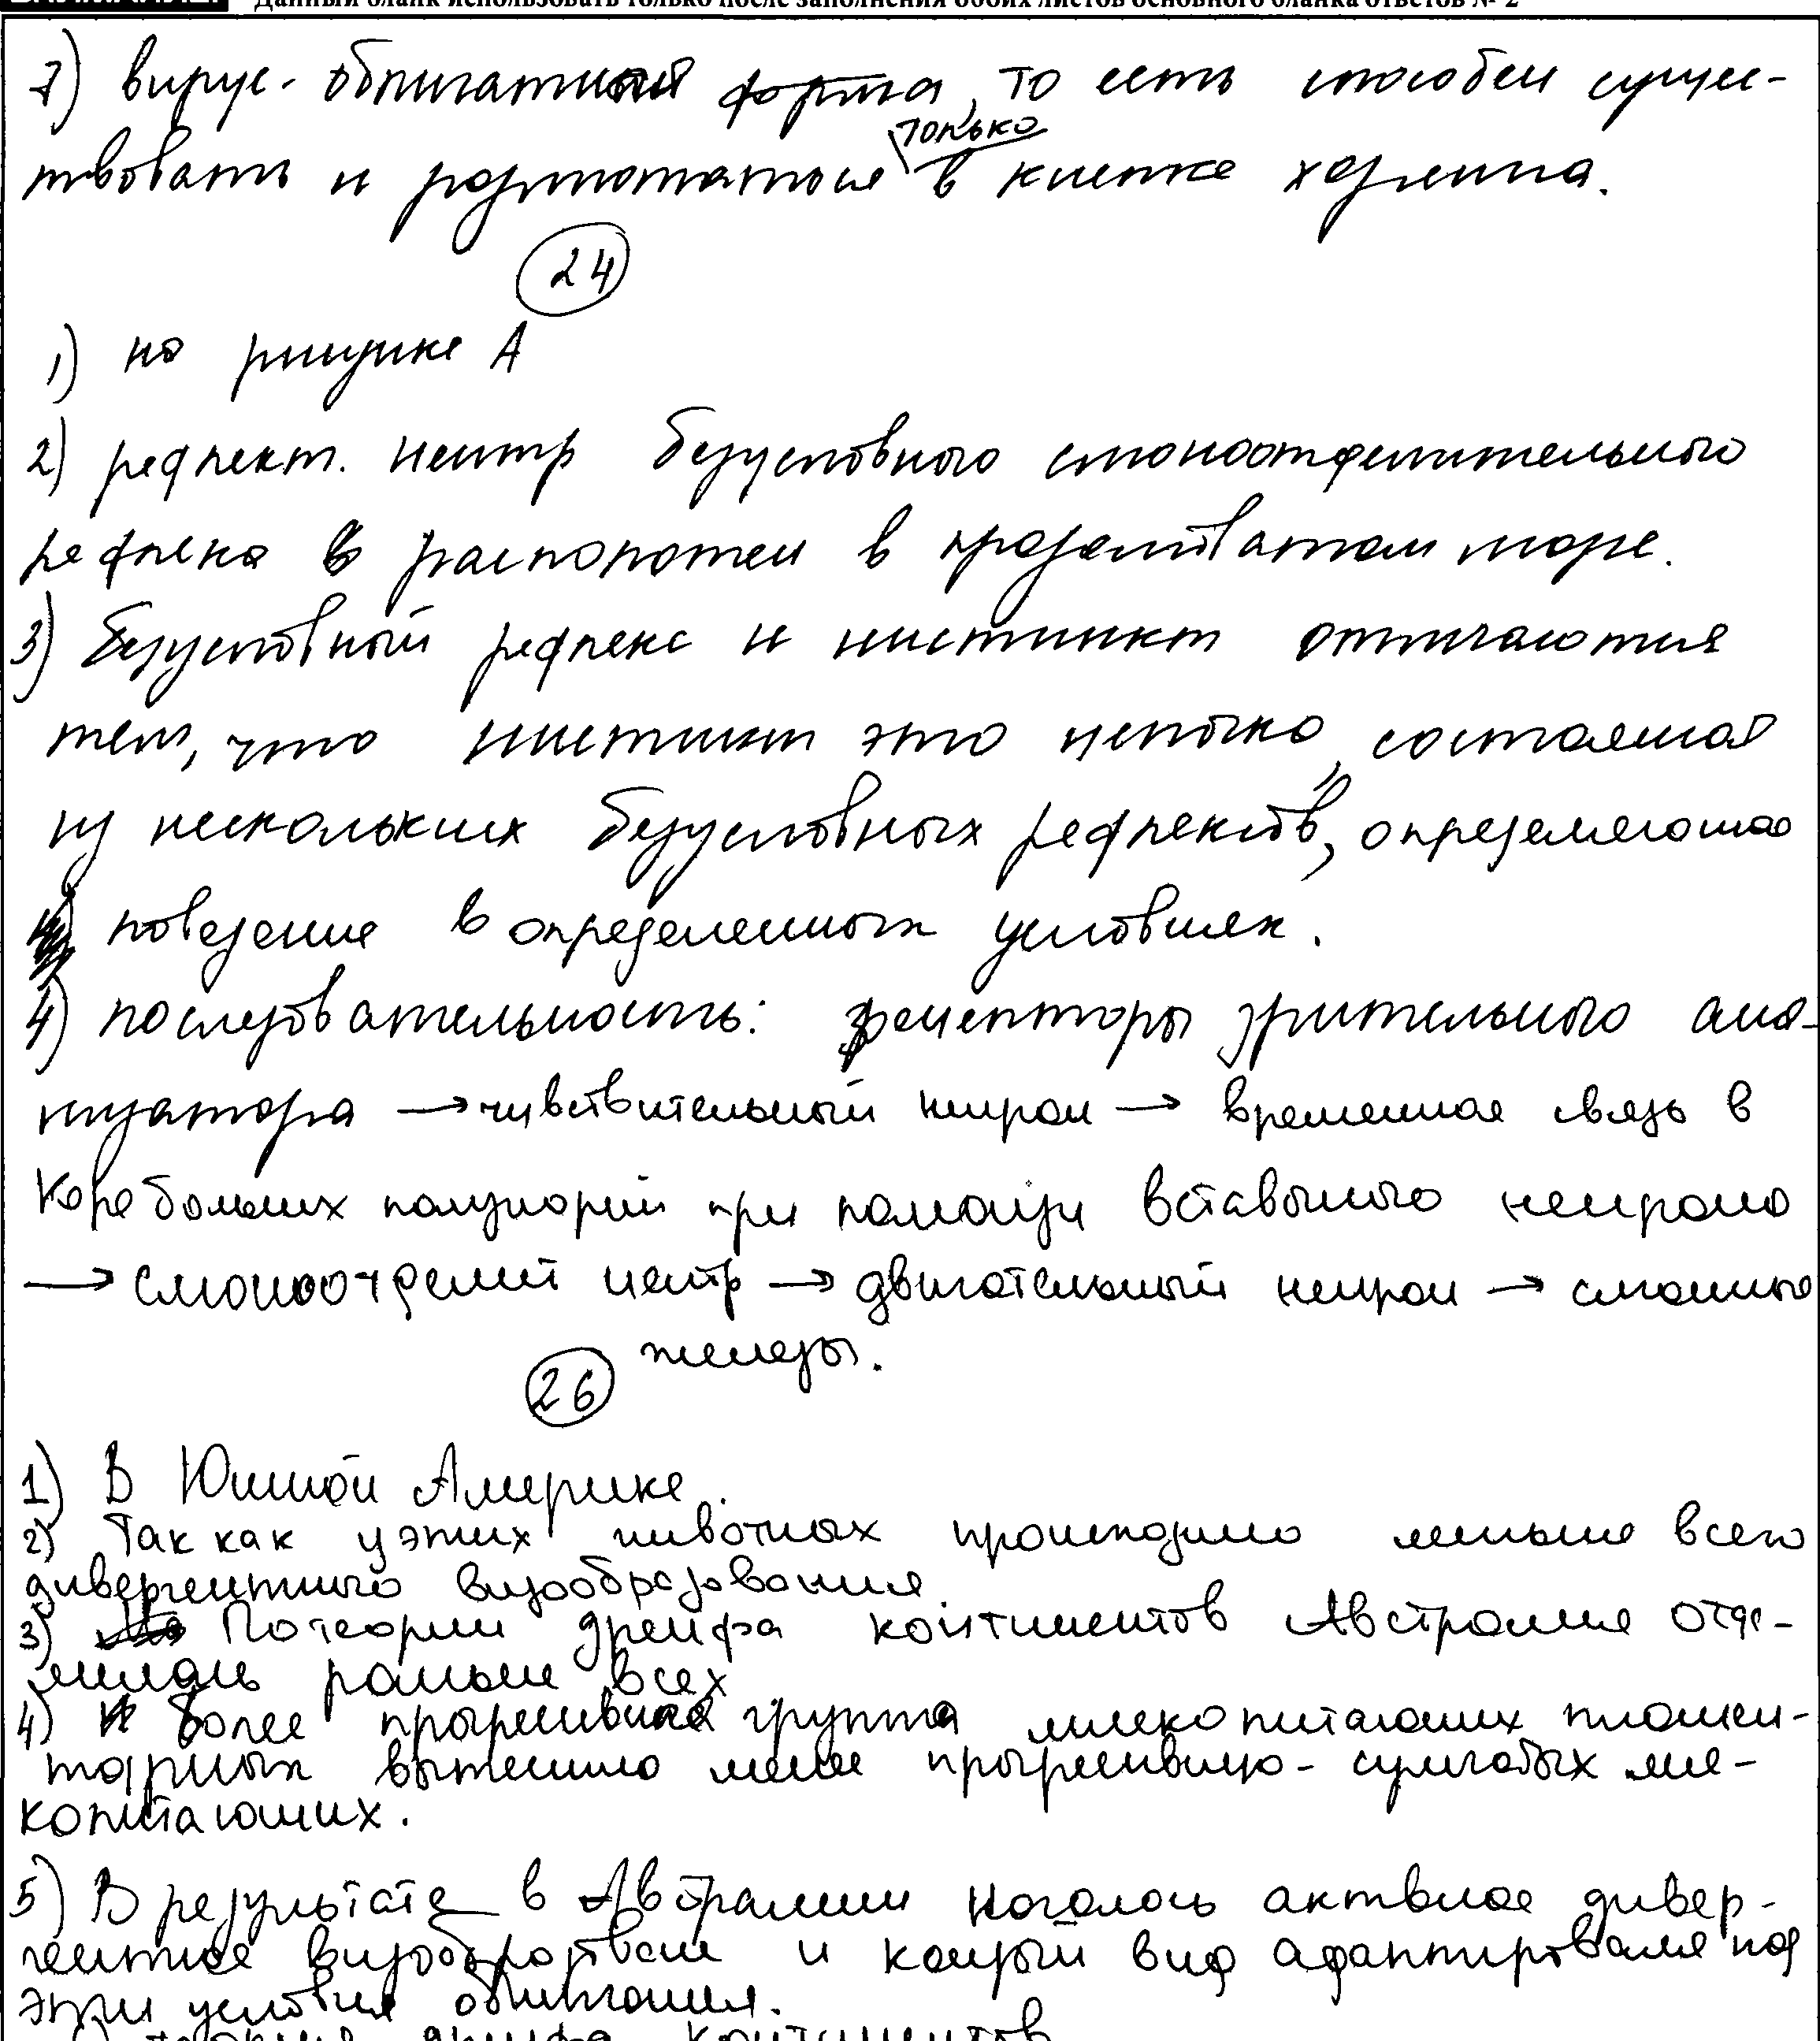 Данный бланк использовать только после заполнения обоих листов основного бланка ответов № 2
7) вирус - облигатный форма, то есть способен сущес-
только
твовать и размножаться в клетке хозяина.
24
1) на рисунке А
2) рефлект. центр безусловного слюноотделительного
рефлекса расположен в продолговатом мозге.
3) Безусловный рефлекс и инстинкт отличаются
тем, что инстинкт это цепочка, состоящая
из нескольких безусловных рефлексов, определяющая
поведение в определенных условиях.
4) последовательность: рецепторы зрительного ана-
лизатора → чувствительный нейрон → временная связь в
коре больших полушарий при помощи вставочного нейрона
→ слюноотделит центр → двигательный нейрон → слюнные
железы.
26
1) В Южной Америке.
2) Так как у этих животных происходило меньше всего
дивергентного видообразования
3) По теории дрейфа континентов Австралия отде-
лилась раньше всех
4) более прогрессивная группа млекопитающих плацен-
тарных вытеснила менее прогрессивную - сумчатых мле-
копитающих.
5) В результате в Австралии началось активное дивер-
гентное видообразование и каждый вид адаптировался под
эти условия обитания.
дрейфа континентов